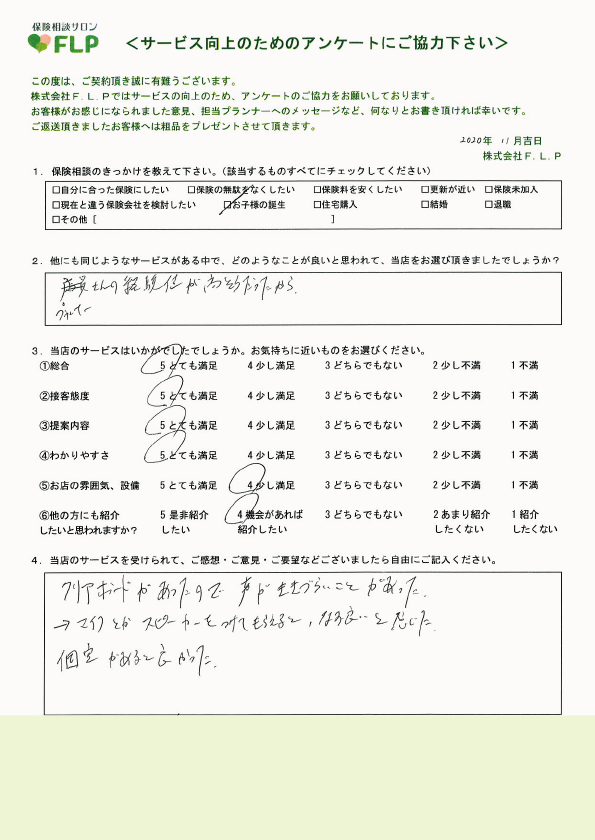 保険相談サロン
FLP
＜サービス向上のためのアンケートにご協力下さい＞
この度は、ご契約頂き誠に有難うございます。
株式会社Ｆ．Ｌ．Ｐではサービスの向上のため、アンケートのご協力をお願いしております。
お客様がお感じになられました意見、担当プランナーへのメッセージなど、何なりとお書き頂ければ幸いです。
ご返送頂きましたお客様へは粗品をプレゼントさせて頂きます。
2020年 11月吉日
株式会社Ｆ．Ｌ．Ｐ
１．保険相談のきっかけを教えて下さい。（該当するものすべてにチェックしてください）
□自分に合った保険にしたい □保険の無駄をなくしたい □保険料を安くしたい □更新が近い □保険未加入
□現在と違う保険会社を検討したい □お子様の誕生 □住宅購入 □結婚 □退職
□その他［ ］
２．他にも同じようなサービスがある中で、どのようなことが良いと思われて、当店をお選び頂きましたでしょうか？
さんの経験値が高そうだったから。
プランナー
３．当店のサービスはいかがでしたでしょうか。お気持ちに近いものをお選びください。
①総合 ５とても満足 ４少し満足 ３どちらでもない ２少し不満 １不満
②接客態度 ５とても満足 ４少し満足 ３どちらでもない ２少し不満 １不満
③提案内容 ５とても満足 ４少し満足 ３どちらでもない ２少し不満 １不満
④わかりやすさ ５とても満足 ４少し満足 ３どちらでもない ２少し不満 １不満
⑤お店の雰囲気、設備 ５とても満足 ４少し満足 ３どちらでもない ２少し不満 １不満
⑥他の方にも紹介 ５是非紹介 ４機会があれば ３どちらでもない ２あまり紹介 １紹介
したいと思われますか？ したい 紹介したい したくない したくない
４．当店のサービスを受けられて、ご感想・ご意見・ご要望などございましたら自由にご記入ください。
クリアボードがあったので声がききづらいことがあった。
→マイクとかスピーカーをつけてもらえると、なお良いと感じた。
個室があると良かった。